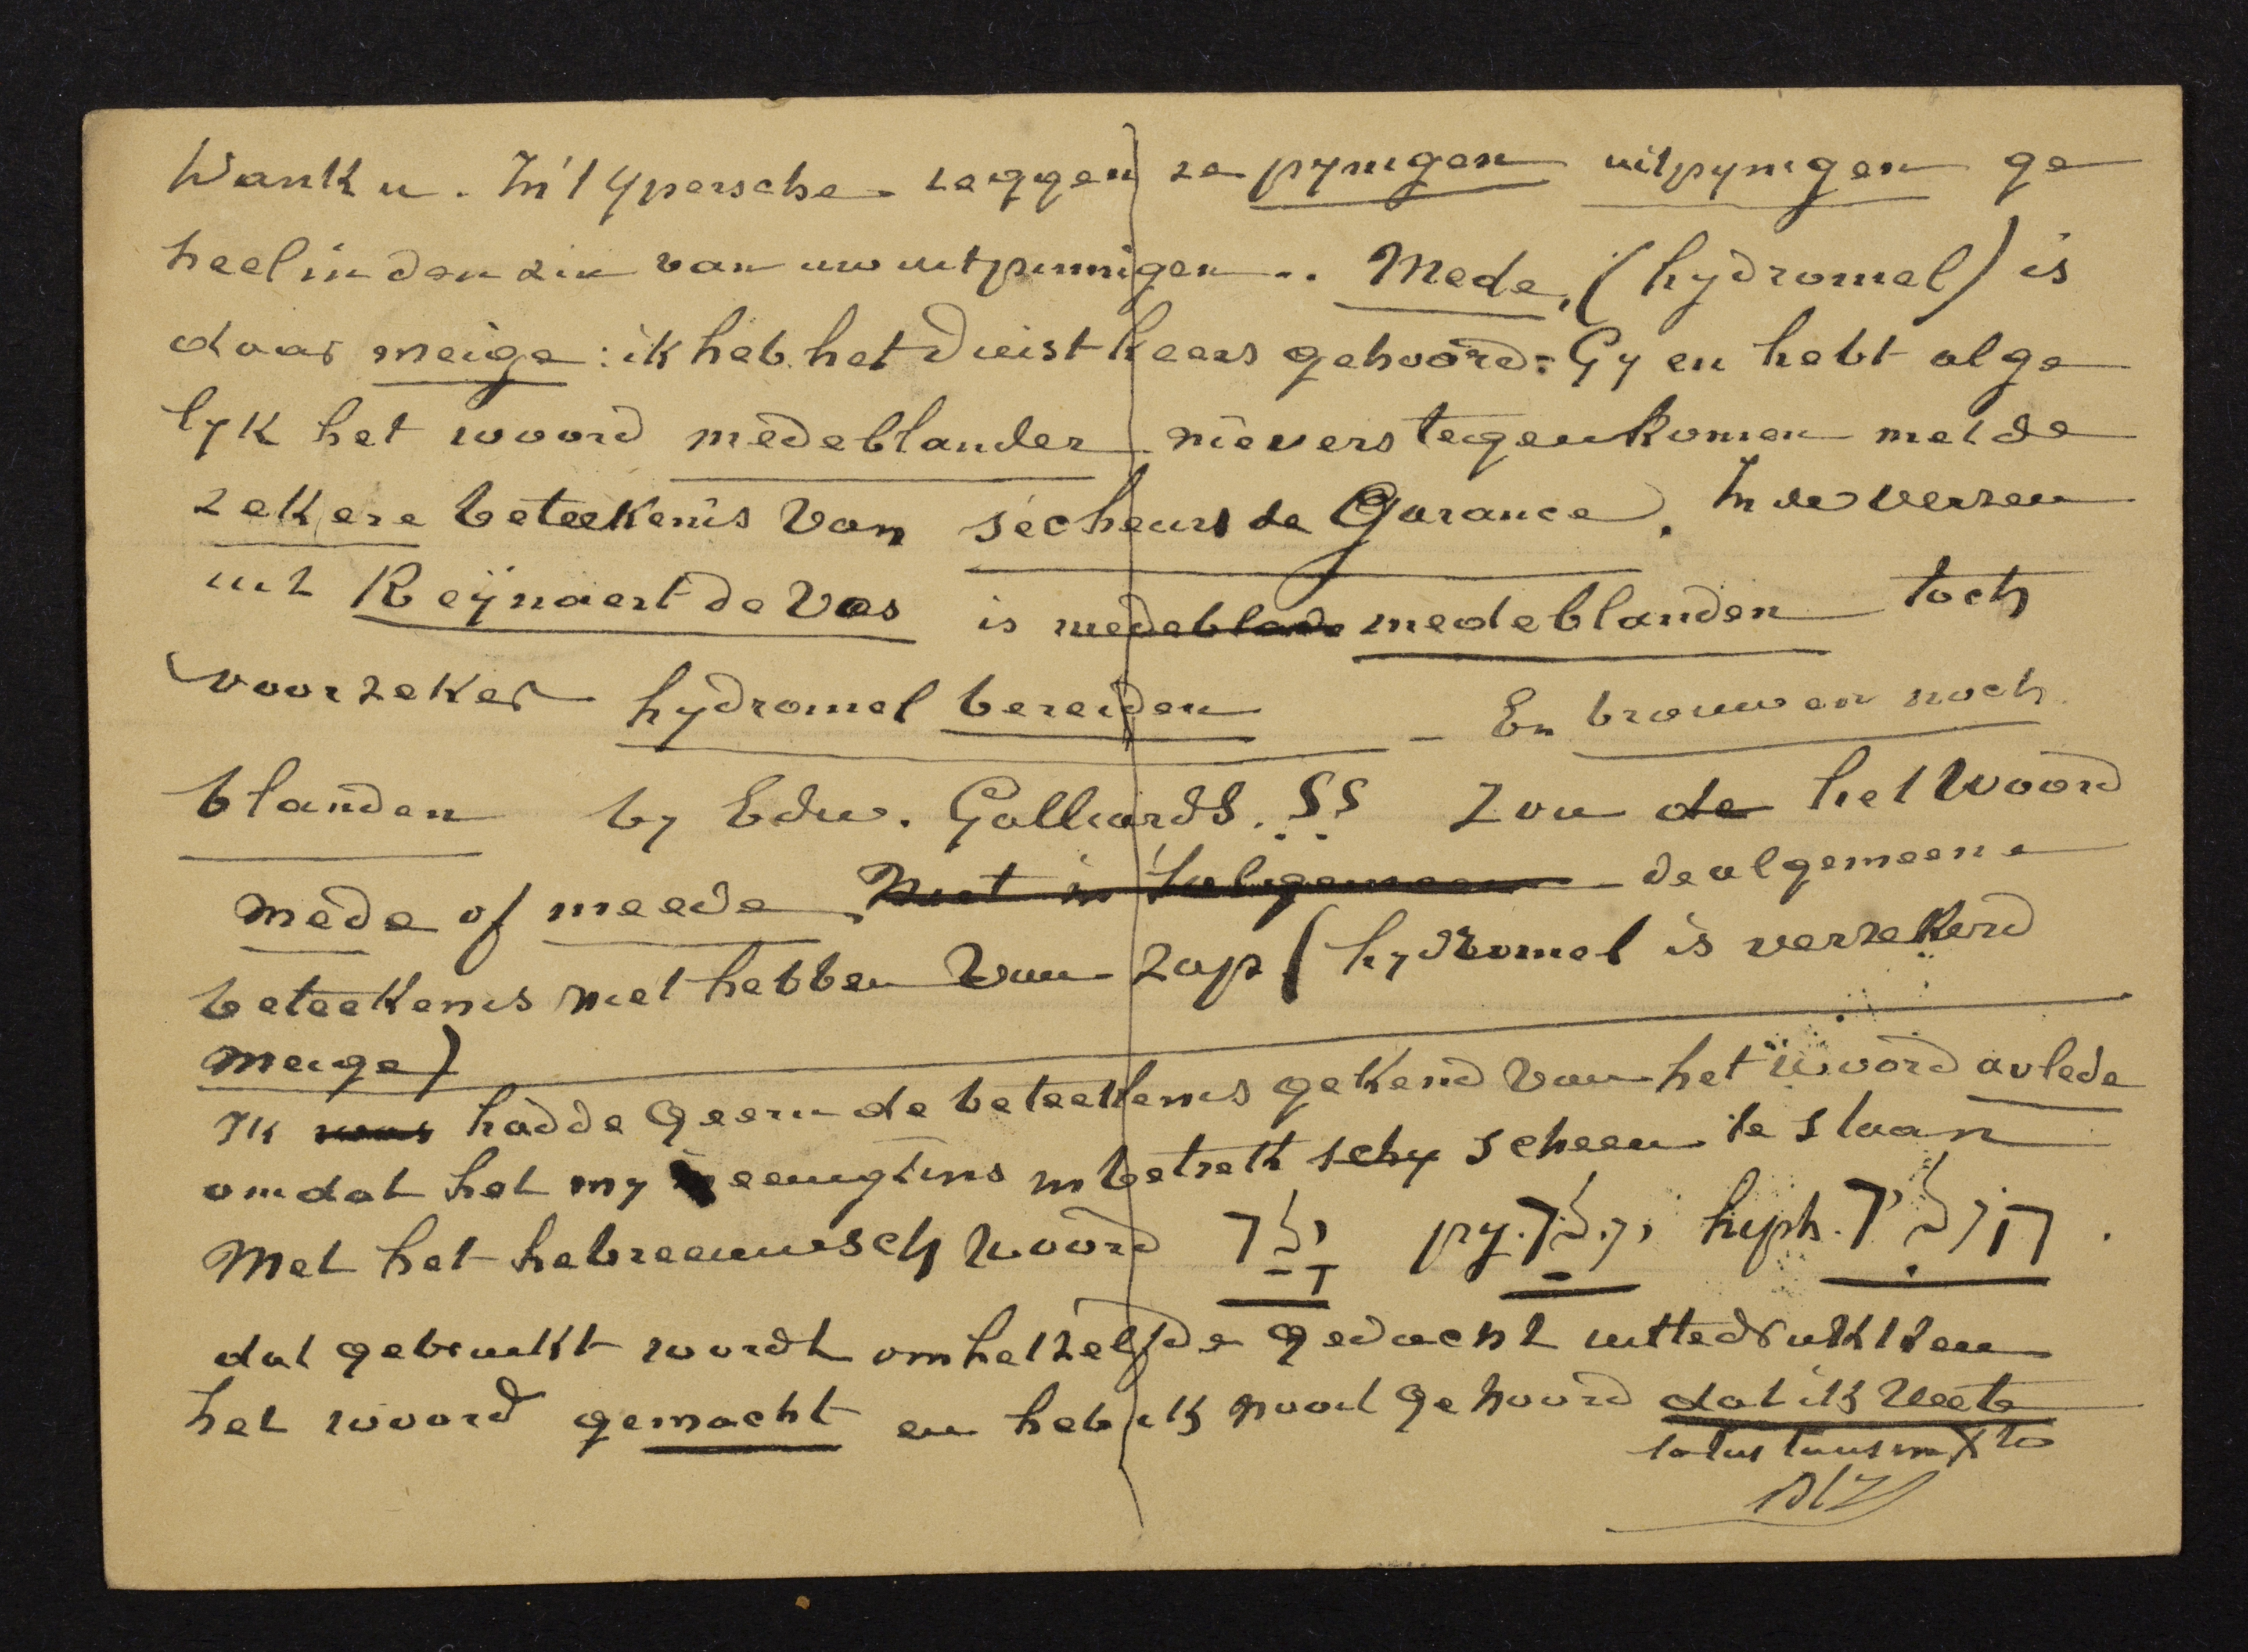 Dank u. In 't Ypersche zeggen ze pynigen uitpynigen ge
heel in den zin van uw uitpinnigen .. Mede, (hydromel) is
daar meige : ik heb het duist keers gehoord: Gy en hebt alge
lyk het woord medeblander nievers tegenkomen met de
zekere beteekenis van sécheurs de Garance. In de verzen
uit Reÿnaert de Vos is medeblande medeblanden toch
voorzeker hydromel bereiden - En brouwen noch
blanden by Edw. Gailliards. ?? Zou de het woord
mede of meede Niet in 't algemeen de algemeene
beteekenis niet hebben van zap (hydromel is verzekerd
meige)
Ik was hadde geern de beteekenis gekend van het woord avlede
omdat het my eenigzins in betrek schy scheen te staan
Met het hebreeuwsch woord ילד py. ילד hiph. הוליד .
dat gebruikt wordt om hetzelfde gedacht uittedrukken
het woord gemacht en heb ik nooit gehoord dat ik weete
totus tuus in Xto